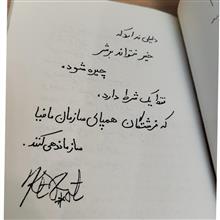 دلیلی ندارد که
خیر نتواند بر شر
چیره شود.
فقط یک شرط دارد.
که فرشتگان همپای سازمان مافیا
سازماندهی کنند.